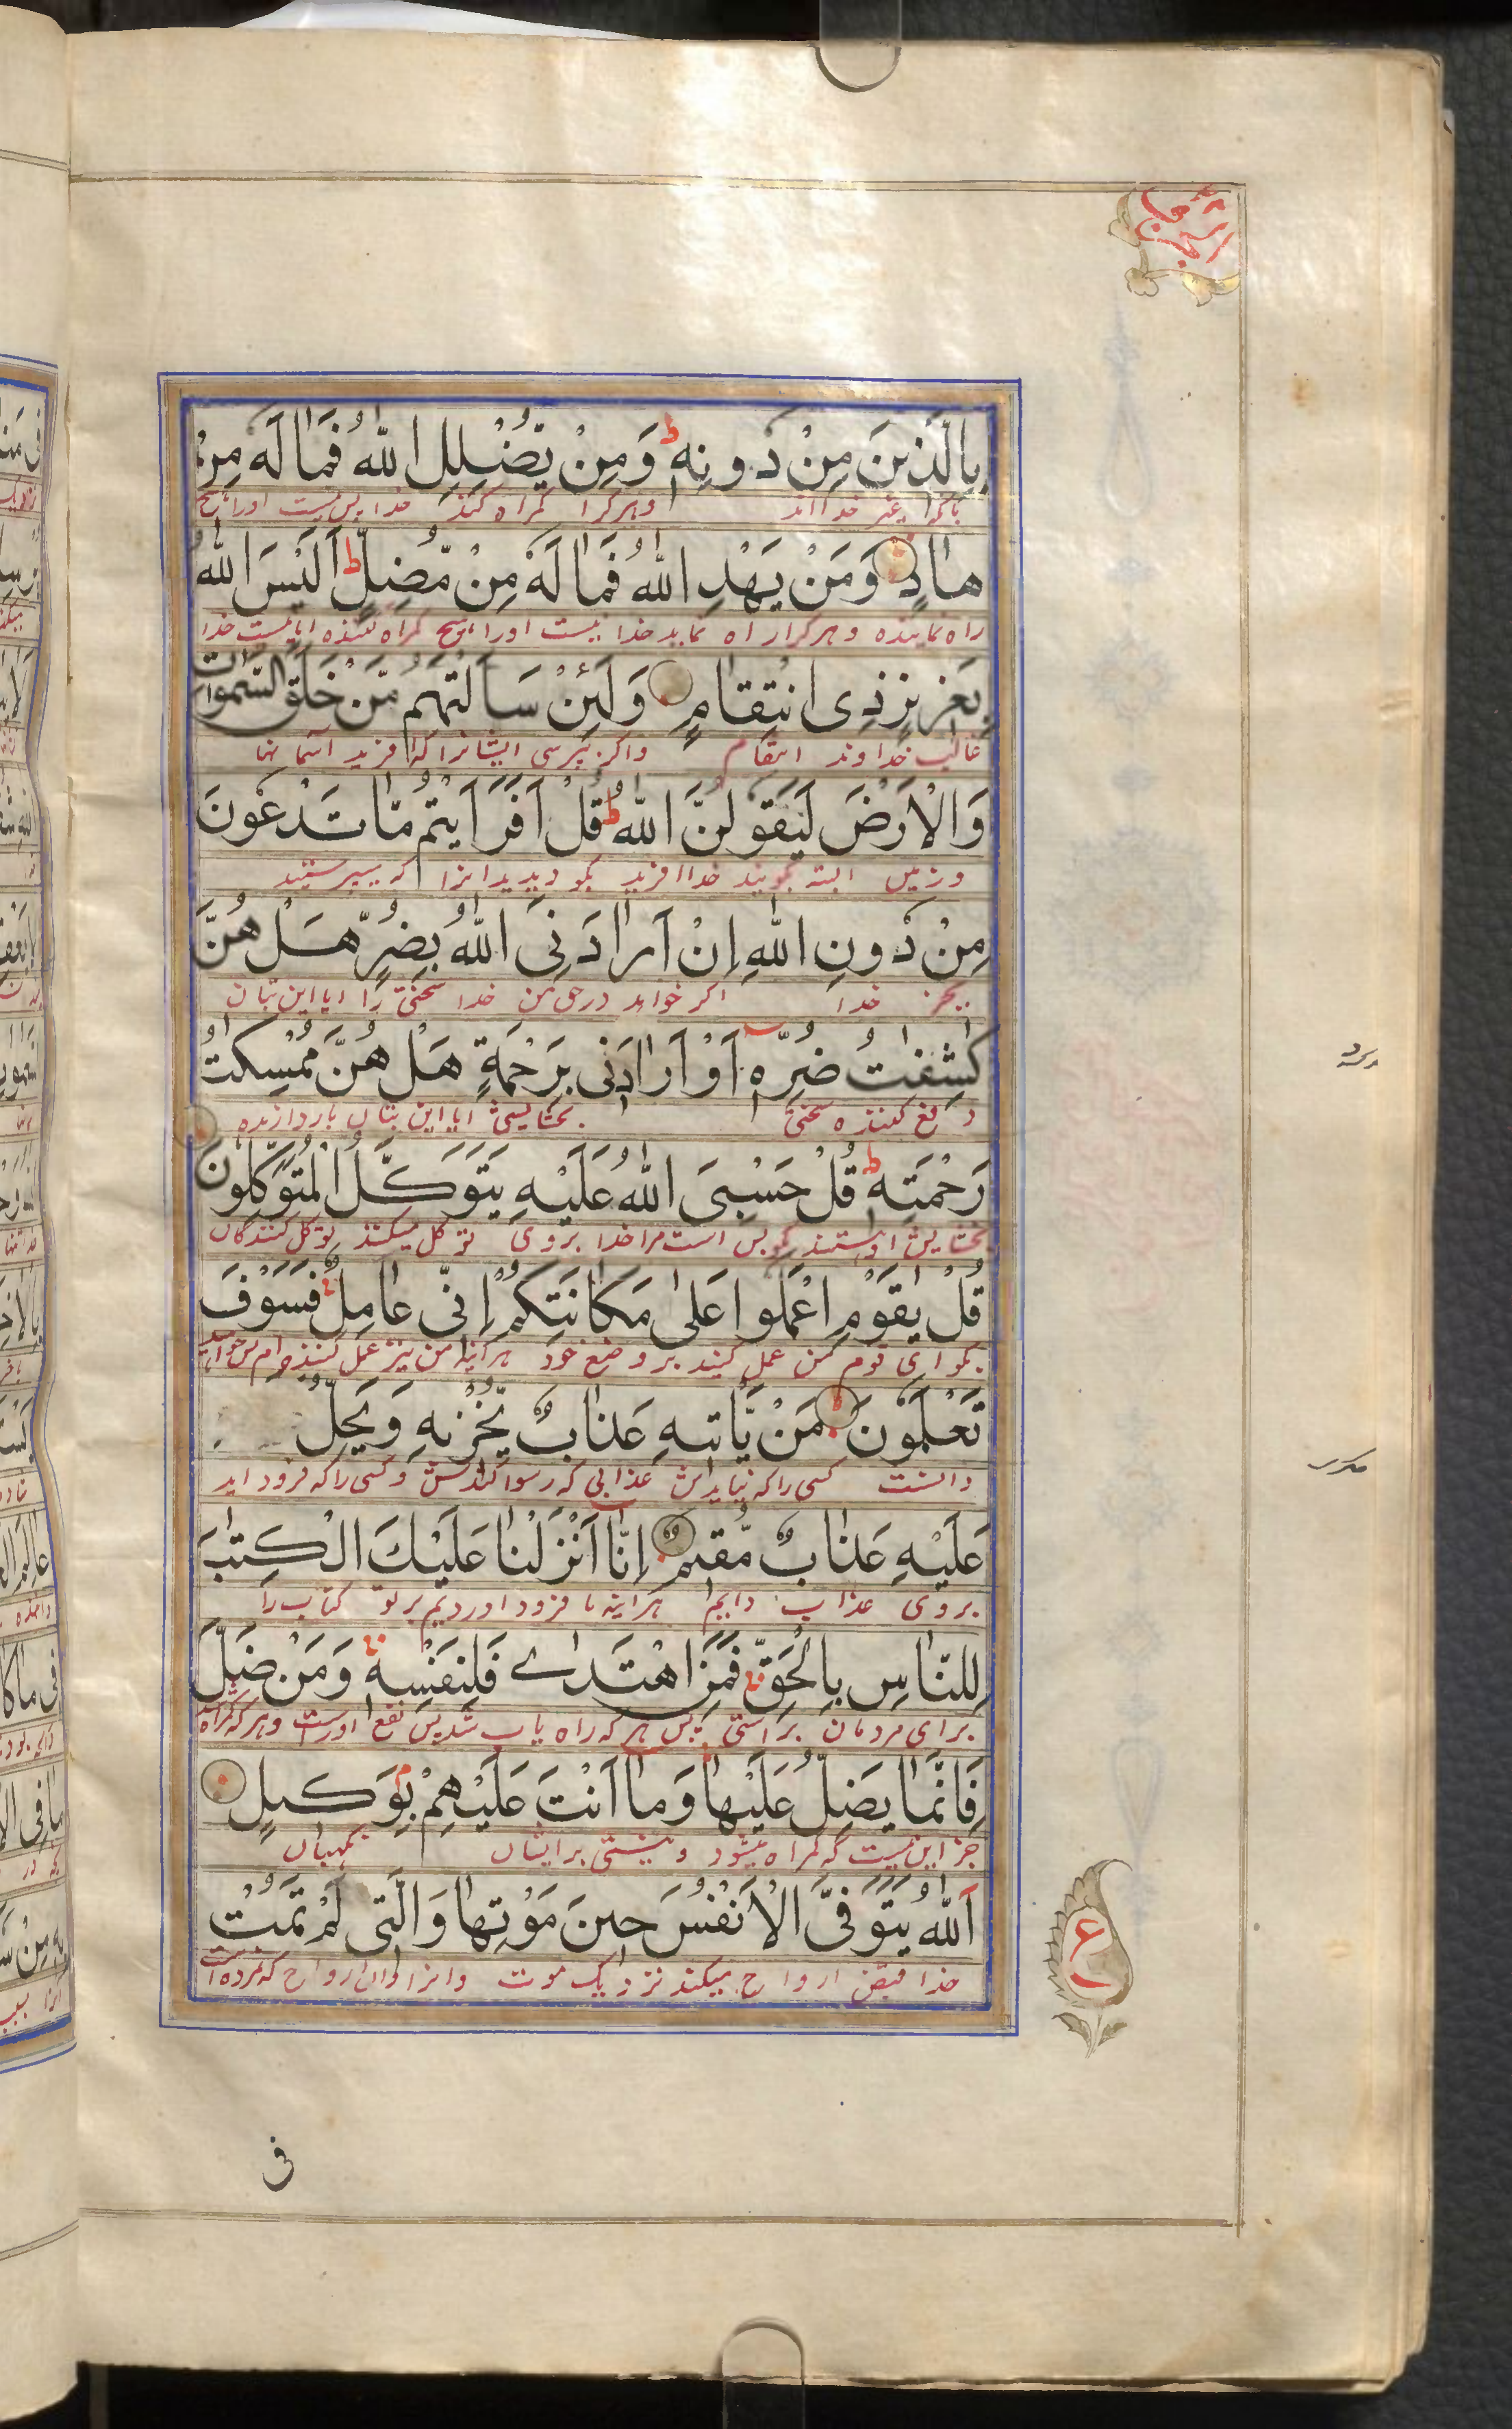 بِالَّذِينَ مِنْ دُونِهٖ ط وَمِنْ يُّضْلِلِ اللّٰهُ فَمَا لَهٗ مِنْ
وهرکرا گمراه کند خدا پس نیست اورا هیچ
هَادٍ وَمَنْ يَهْدِ اللّٰهُ فَمَا لَهٗ مِنْ مُّضِلٍّ ط اَلَيْسَ اللّٰهُ
راه نماینده وهرکرا راه نماید خدا نیست اورا هیچ گمراه کننده ایا نیست خدا
بِعَزِيزٍ ذِى انْتِقَامٍ وَلَئِنْ سَاَلْتَهُمْ مَّنْ خَلَقَ السَّمٰوَاتِ
غالب خداوند انتقام واکر بپرسی ایشانرا که افرید اسمانها
وَالْاَرْضَ لَيَقُولُنَّ اللّٰهُ ط قُلْ اَفَرَاَيْتُمْ مَّا تَدْعُونَ
وزمین البته گویند خدا افرید بگو دیدید انرا که میپرستید
مِنْ دُونِ اللّٰهِ اِنْ اَرَادَنِىَ اللّٰهُ بِضُرٍّ هَلْ هُنَّ
بجز خدا اگر خواهد درحق من خدا سختی را ایا این بتان
كٰشِفٰتُ ضُرِّهٖ اَوْ اَرَادَنِى بِرَحْمَةٍ هَلْ هُنَّ مُمْسِكٰتُ
دفع کننده سختی بخشایشی ایا این بتان بازدارنده
رَحْمَتِهٖ ط قُلْ حَسْبِىَ اللّٰهُ عَلَيْهِ يَتَوَكَّلُ الْمُتَوَكِّلُونَ
بخشایش او هستند بگو بس است مرا خدا بروی توکل میکنند توکل کنندگان
قُلْ يٰقَوْمِ اعْمَلُوا عَلٰى مَكَانَتِكُمْ اِنِّى عَامِلٌ فَسَوْفَ
بگو ای قوم من عمل کنید بر وضع خود هراینه من نیز عمل کننده ام پس خواهید
تَعْلَمُونَ مَنْ يَّاْتِيهِ عَذَابٌ يُّخْزِيهِ وَيَحِلُّ
دانست کسی را که بیایدش عذابی که رسوا کندش وکسی را که فرود اید
عَلَيْهِ عَذَابٌ مُّقِيمٌ اِنَّا اَنْزَلْنَا عَلَيْكَ الْكِتٰبَ
بروی عذاب دایم هراینه ما فرود اوردیم برتو کتاب را
لِلنَّاسِ بِالْحَقِّ فَمَنِ اهْتَدٰى فَلِنَفْسِهٖ وَمَنْ ضَلَّ
برای مردمان براستی پس هرکه راه یاب شد پس نفع اوراست وهرکه گمراه شد
فَاِنَّمَا يَضِلُّ عَلَيْهَا وَمَا اَنْتَ عَلَيْهِمْ بِوَكِيلٍ
جز این نیست که گمراه میشود ونیستی برایشان نگهبان
اَللّٰهُ يَتَوَفَّى الْاَنْفُسَ حِينَ مَوْتِهَا وَالَّتِى لَمْ تَمُتْ
خدا قبض ارواح میکند نزدیک موت وانرا از ان ارواح که نمرده است
ع
فى